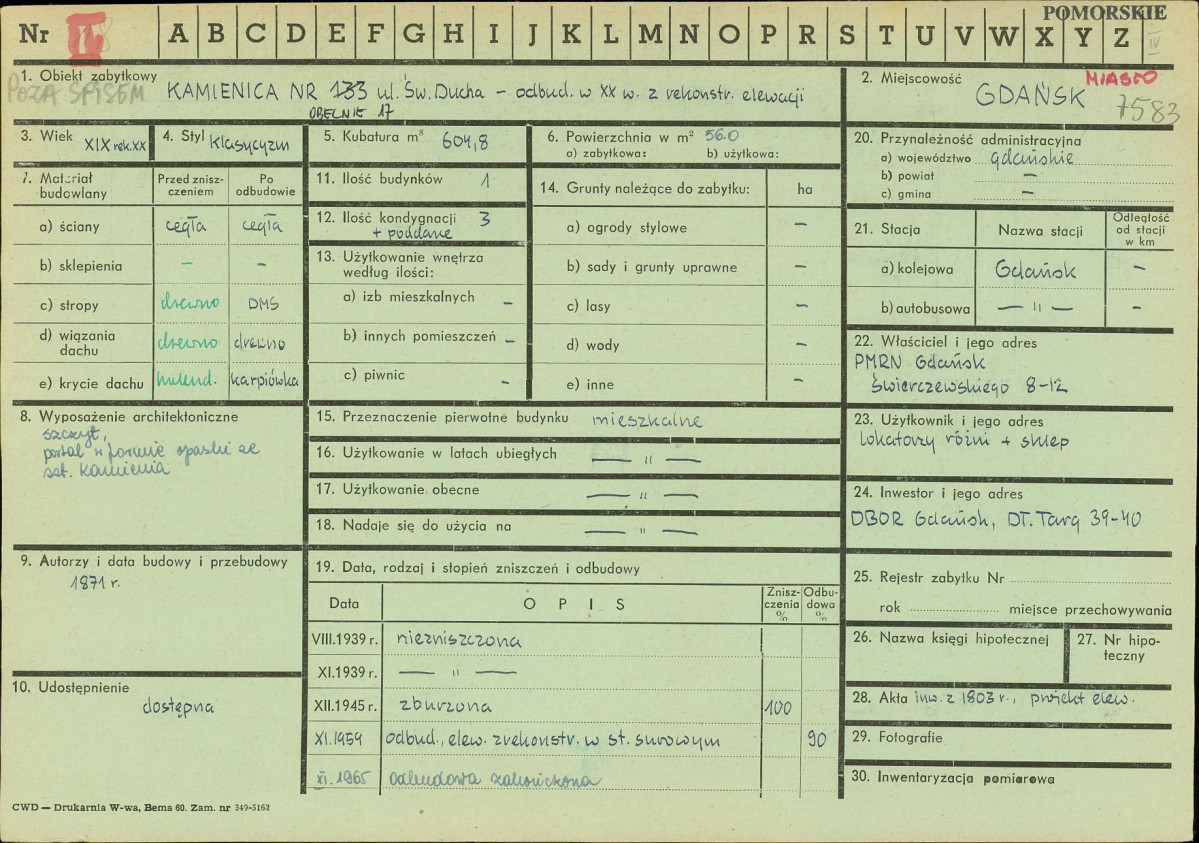 POMORSKIE
Nr II A B C D E F G H I J K L M N O P R S T U V W X Y Z IV
1. Obiekt zabytkowy KAMIENICA NR 133 ul. Św. Ducha – odbud. w XX w. z rekonstr. elewacji
POZA SPISEM
OBECNIE 17
2. Miejscowość MIASTO
GDAŃSK 7583
3. Wiek XIX rek. XX
4. Styl Klasycyzm
5. Kubatura m³ 604,8
6. Powierzchnia w m² 56.0
a) zabytkowa: b) użytkowa:
7. Materiał budowlany
Przed zniszczeniem
Po odbudowie
a) ściany cegła cegła
b) sklepienia – –
c) stropy drewno DMS
d) wiązania dachu drewno drewno
e) krycie dachu holend. karpiówka
8. Wyposażenie architektoniczne
szczyt,
portal w formie opaski ze
szt. kamienia
9. Autorzy i data budowy i przebudowy
1871 r.
10. Udostępnienie
dostępna
11. Ilość budynków 1
12. Ilość kondygnacji 3
+ poddasze
13. Użytkowanie wnętrza
według ilości:
a) izb mieszkalnych –
b) innych pomieszczeń –
c) piwnic –
14. Grunty należące do zabytku: ha
a) ogrody stylowe –
b) sady i grunty uprawne –
c) lasy –
d) wody –
e) inne –
15. Przeznaczenie pierwotne budynku mieszkalne
16. Użytkowanie w latach ubiegłych — " —
17. Użytkowanie obecne — " —
18. Nadaje się do użycia na — " —
19. Data, rodzaj i stopień zniszczeń i odbudowy
Data OPIS Zniszczenia % Odbudowa %
VIII.1939 r. niezniszczona
XI.1939 r. — " —
XII.1945 r. zburzona 100
XI.1959 odbud., elew. zrekonstr. w st. surowym 90
XI.1965 odbudowa zakończona
20. Przynależność administracyjna
a) województwo gdańskie
b) powiat –
c) gmina –
21. Stacja Nazwa stacji Odległość od stacji w km
a) kolejowa Gdańsk –
b) autobusowa — " — –
22. Właściciel i jego adres
PMRN Gdańsk
Świerczewskiego 8-12
23. Użytkownik i jego adres
lokatorzy różni + sklep
24. Inwestor i jego adres
DBOR Gdańsk, DT. Targ 39-40
25. Rejestr zabytku Nr
rok miejsce przechowywania
26. Nazwa księgi hipotecznej
27. Nr hipoteczny
28. Akta inw. z 1803 r., projekt elew.
29. Fotografie
30. Inwentaryzacja pomiarowa
CWD — Drukarnia W-wa, Bema 60. Zam. nr 349-5162